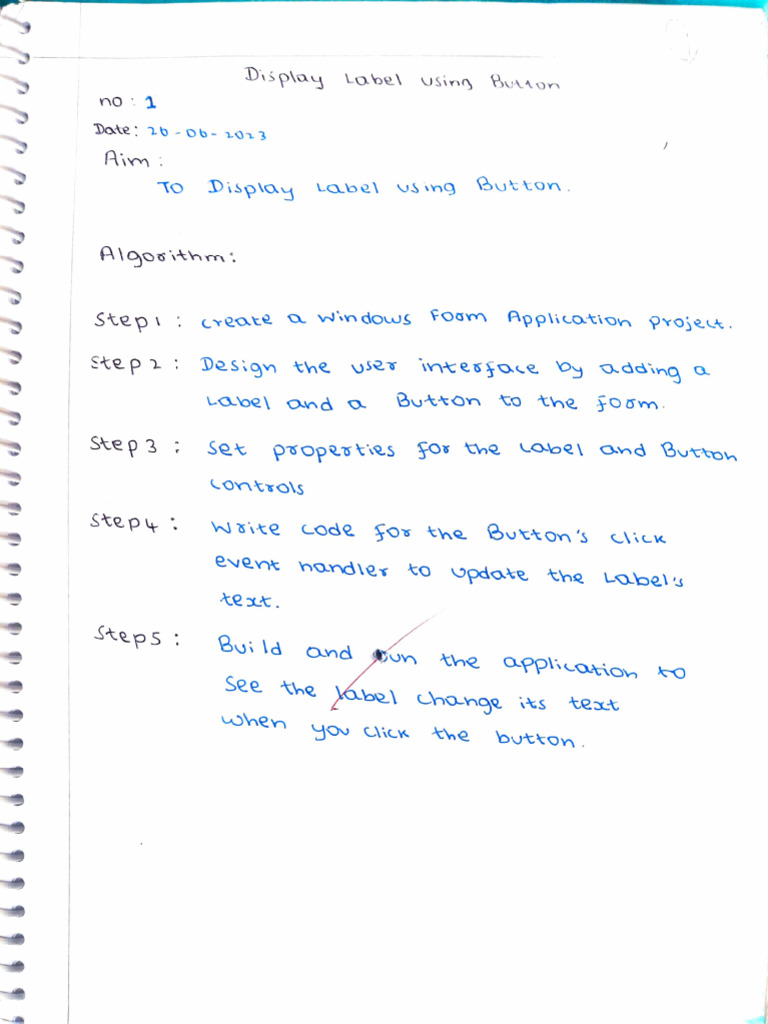 Display Label using Button
no : 1
Date: 26-06-2023
Aim :
To Display Label using Button.
Algorithm:
Step1 : create a windows Form Application project.
Step2 : Design the user interface by adding a
Label and a Button to the form.
Step3 : set properties for the Label and Button
controls
Step4 : write code for the Button's click
event handler to update the Label's
text.
Step5 : Build and run the application to
see the label change its text
when you click the button.